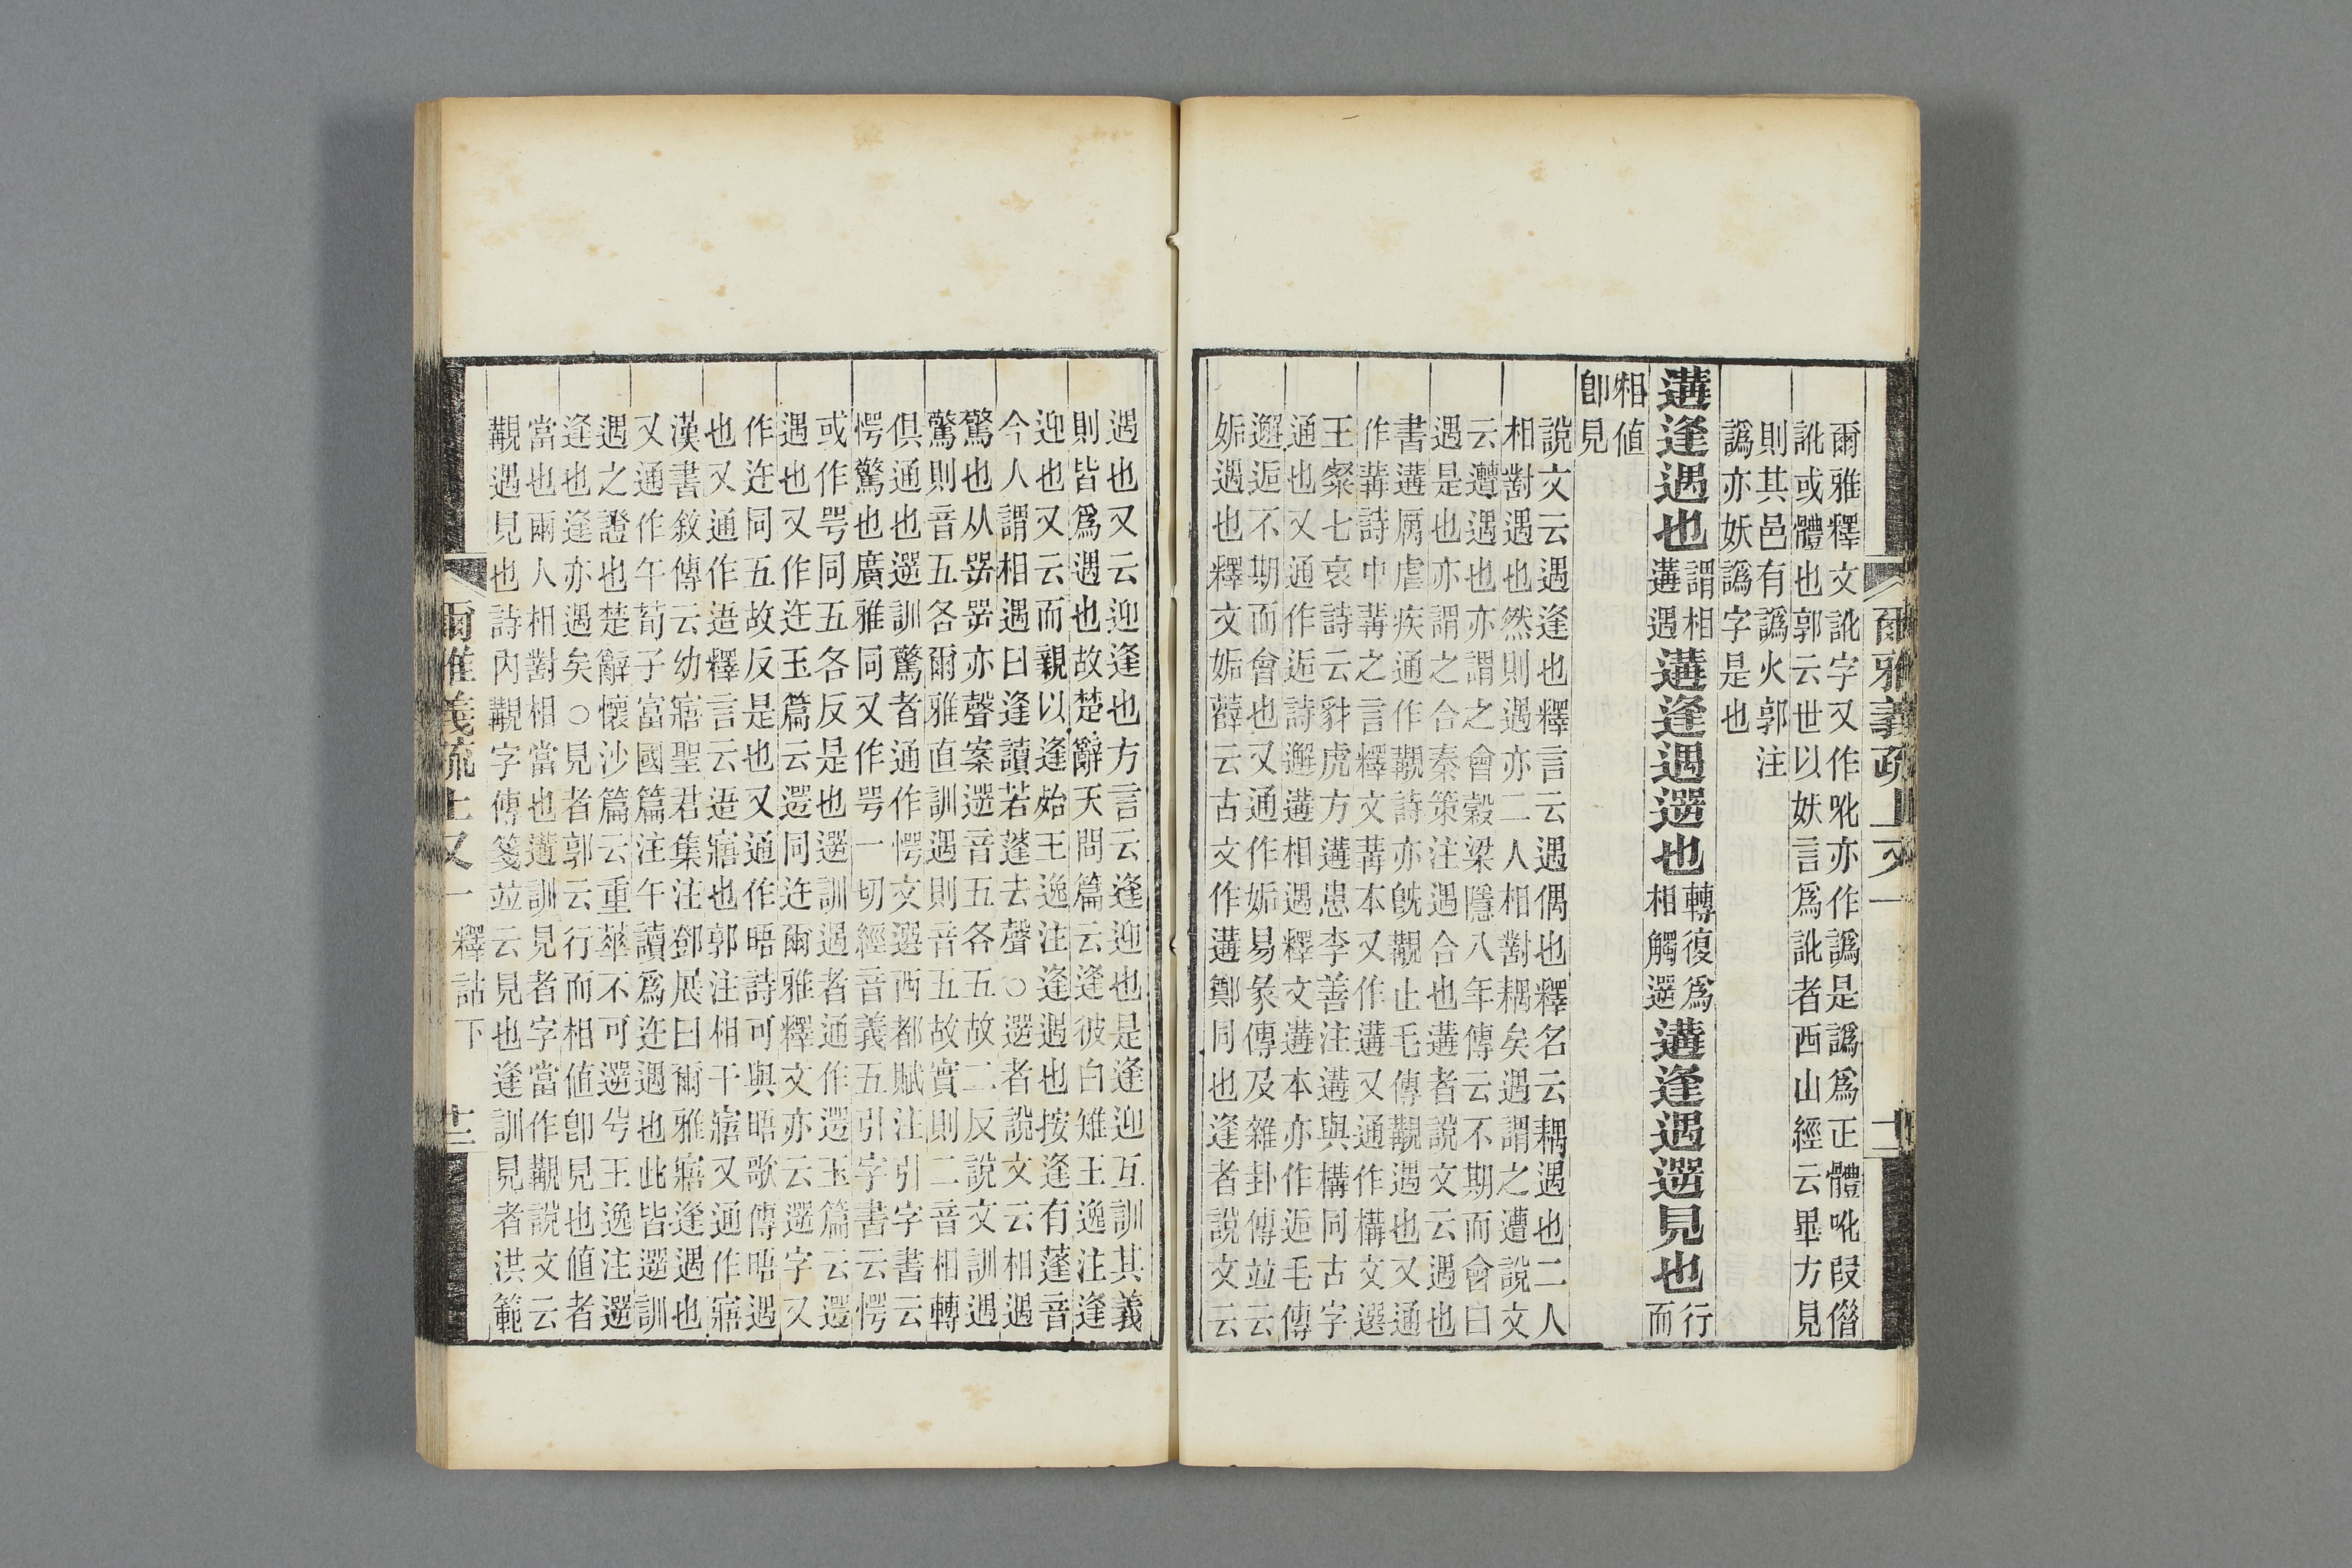 爾雅義疏上又一
十二
爾雅釋文訛字又作吪亦作譌是譌爲正體吪叚僭
訛或體也郭云世以妖言爲訛者西山經云畢方見
則其邑有譌火郭注
譌亦妖譌字是也
遘逢遇也
謂相
遘遇
遘逢遇遻也
轉復爲
相觸遻
遘逢遇遻見也
行
而
相値
卽見
說文云遇逢也釋言云遇偶也釋名云耦遇也二人
相對遇也然則遇亦二人相對耦矣遇謂之遭說文
云遭遇也亦謂之會穀梁隱八年傳云不期而會曰
遇是也亦謂之合秦策注遇合也遘者說文云遇也
書遘厲虐疾通作覯詩亦旣覯止毛傳覯遇也又通
作冓詩中冓之言釋文冓本又作遘又通作構文選
王粲七哀詩云豺虎方遘患李善注遘與構同古字
通也又通作逅詩邂遘相遇釋文遘本亦作逅毛傳
邂逅不期而會也又通作姤易彖傳及雜卦傳竝云
姤遇也釋文姤薛云古文作遘鄭同也逢者說文云
遇也又云迎逢也方言云逢迎也是逢迎互訓其義
則皆爲遇也故楚辭天問篇云逢彼白雉王逸注逢
迎也又云而親以逢殆王逸注逢遇也按逢有蓬音
今人謂相遇曰逢讀若蓬去聲○遻者說文云相遇
驚也从㖾㖾亦聲案遻音五各五故二反說文訓遇
驚則音五各爾雅直訓遇則音五故實則二音相轉
俱通也遻訓驚者通作愕文選西都賦注引字書云
愕驚也廣雅同又作咢一切經音義五引字書云愕
或作咢同五各反是也遻訓遇者通作遻玉篇云遻
遇也又作迕玉篇云遻同迕爾雅釋文亦云遻字又
作迕同五故反是也又通作晤詩可與晤歌傳晤遇
也又通作逜釋言云逜寤也郭注相干寤又通作寤
漢書敘傳云幼寤聖君集注鄧展曰爾雅寤逢遇也
又通作午荀子富國篇注午讀爲迕遇也此皆遻訓
遇之證也楚辭懷沙篇云重華不可遻兮王逸注遻
逢也逢亦遇矣○見者郭云行而相値卽見也値者
當也爾人相對相當也遘訓見者字當作覯說文云
覯遇見也詩內覯字傳箋竝云見也逢訓見者洪範
爾雅義疏上又一
釋詁下
十二